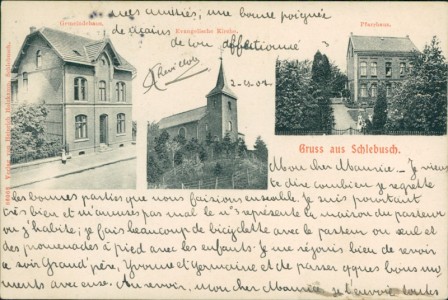 mes amitiés, une bonne poignée
de mains
de ton affectionné
Gemeindehaus.
Evangelische Kirche.
Pfarrhaus.
2-12-04
Gruss aus Schlebusch.
Mon cher Maurice - Je viens
te dire combien je regrette
les bonnes parties que nous faisions ensemble. Je suis pourtant
très bien et m'amuse pas mal le n°3 représente la maison du pasteur
où j'habite; je fais beaucoup de bicyclette avec le pasteur ou seul et
des promenades à pied avec les enfants. Je me réjouis bien de revoir
Grand'père, Yvonne et Germaine et de passer qques bons mo-
ments avec eux. Au revoir, mon cher Maurice, je t'envoie toutes